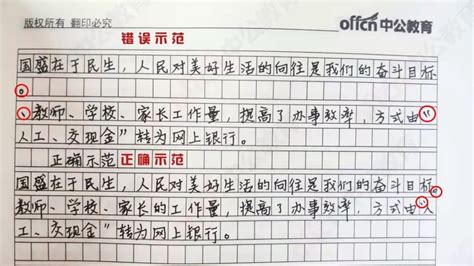 版权所有 翻印必究 offcn中公教育
错误示范
国盛在于民生，人民对美好生活的向往是我们的奋斗目标
。
、教师、学校、家长工作量，提高了办事效率，方式由“
人工、交现金”转为网上银行。
正确示范 正确示范
国盛在于民生，人民对美好生活的向往是我们的奋斗目标。
教师、学校、家长的工作量，提高了办事效率，方式由“人
工、交现金”转为网上银行。